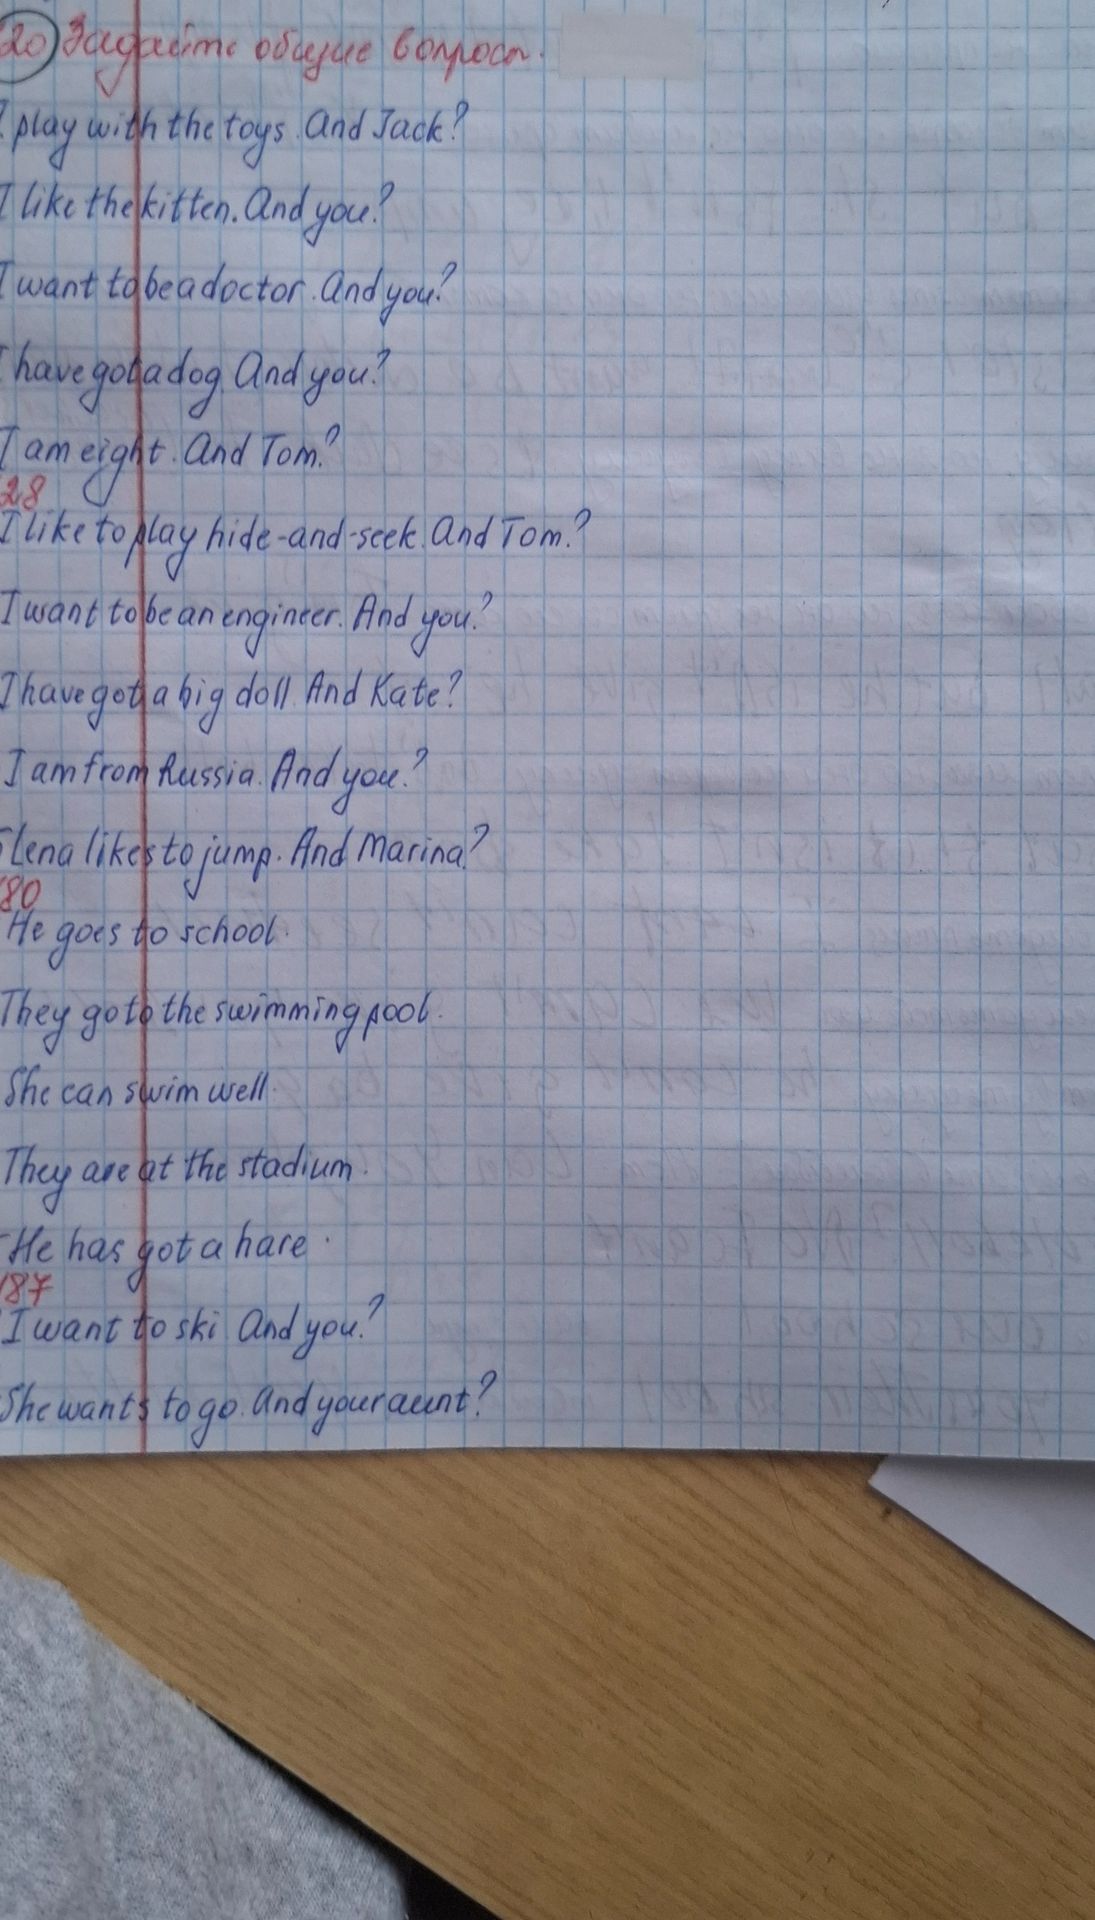 20 Задайте общие вопросы.
I play with the toys. And Jack?
I like the kitten. And you?
I want to be a doctor. And you?
I have got a dog. And you?
I am eight. And Tom?
28
I like to play hide-and-seek. And Tom?
I want to be an engineer. And you?
I have got a big doll. And Kate?
I am from Russia. And you?
Lena likes to jump. And Marina?
80
He goes to school.
They go to the swimming pool.
She can swim well.
They are at the stadium.
He has got a hare.
187
I want to ski. And you?
She wants to go. And your aunt?